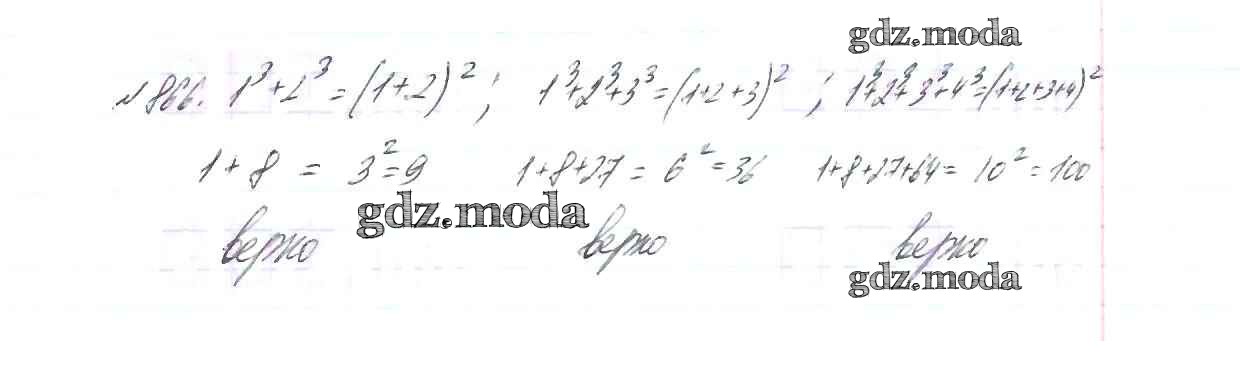 gdz.moda
№866. 1³+2³=(1+2)²; 1³+2³+3³=(1+2+3)²; 1³+2³+3³+4³=(1+2+3+4)²
1+8 = 3²=9 1+8+27=6²=36 1+8+27+64=10²=100
gdz.moda
верно верно верно
gdz.moda